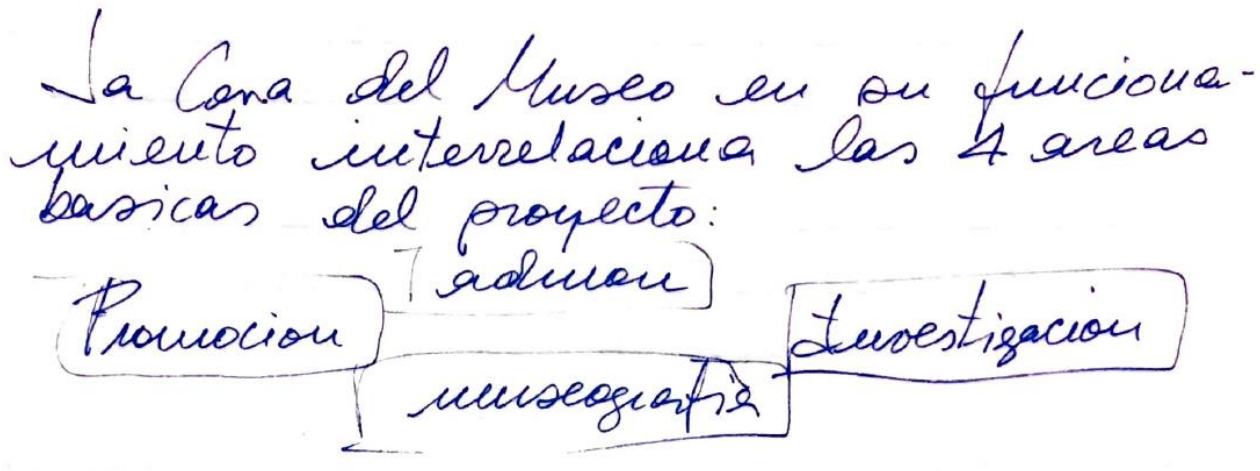 La Casa del Museo en su funciona-
miento interrelaciona las 4 areas
basicas del proyecto:
admon
Promocion
Investigacion
museografía